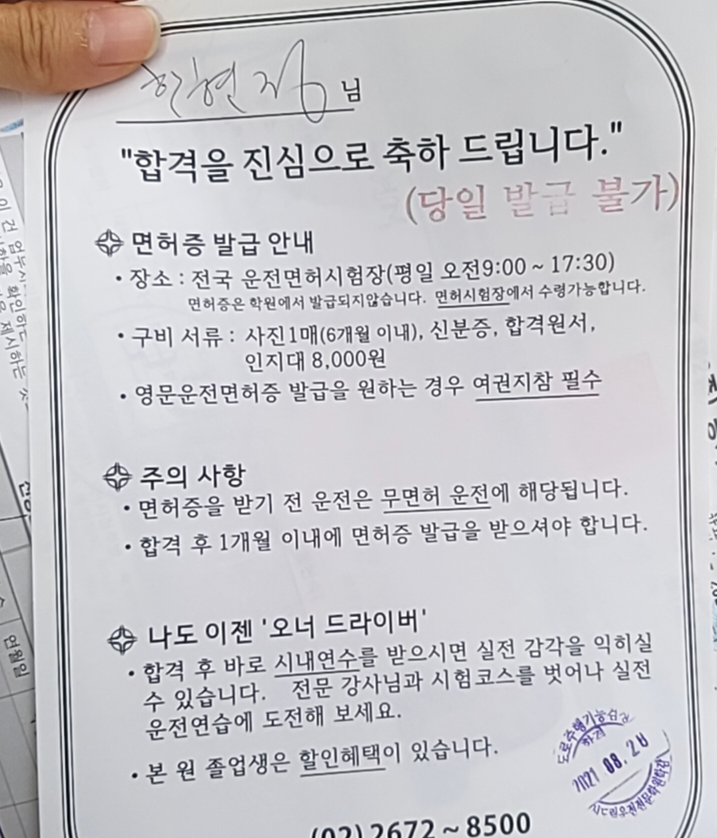 한현정 님
"합격을 진심으로 축하 드립니다."
(당일 발급 불가)
면허증 발급 안내
• 장소 : 전국 운전면허시험장(평일 오전9:00 ~ 17:30)
면허증은 학원에서 발급되지않습니다. 면허시험장에서 수령가능합니다.
• 구비 서류 : 사진1매(6개월 이내), 신분증, 합격원서,
인지대 8,000원
• 영문운전면허증 발급을 원하는 경우 여권지참 필수
주의 사항
• 면허증을 받기 전 운전은 무면허 운전에 해당됩니다.
• 합격 후 1개월 이내에 면허증 발급을 받으셔야 합니다.
나도 이젠 '오너 드라이버'
• 합격 후 바로 시내연수를 받으시면 실전 감각을 익히실
수 있습니다. 전문 강사님과 시험코스를 벗어나 실전
운전연습에 도전해 보세요.
• 본 원 졸업생은 할인혜택이 있습니다.
합격
2021 08. 26
(02) 2672 ~ 8500
연월일